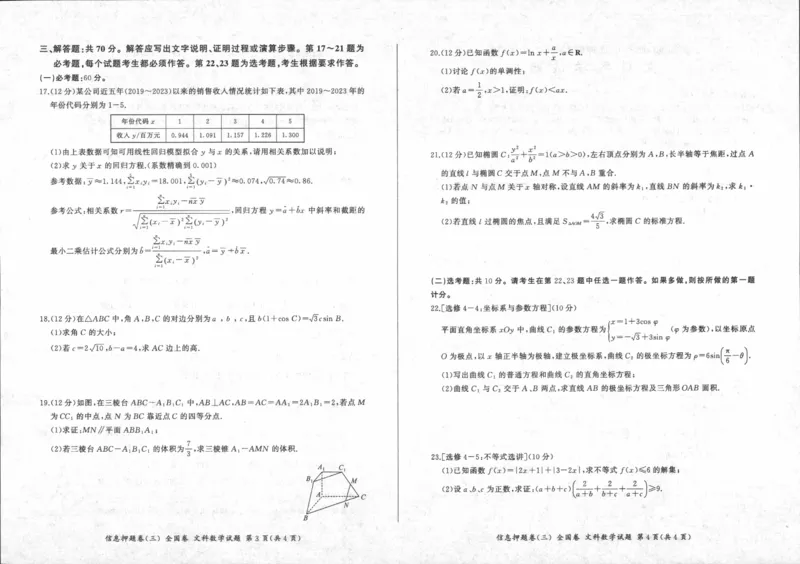 三、解答题:共70分。解答应写出文字说明、证明过程或演算步骤。第17~21题为
必考题,每个试题考生都必须作答。第22、23题为选考题,考生根据要求作答。
(一)必考题:60分。
17.(12分)某公司近五年(2019~2023)以来的销售收入情况统计如下表,其中2019~2023年的
年份代码分别为1~5.
年份代码x 1 2 3 4 5
收入y/百万元 0.944 1.091 1.157 1.228 1.300
(1)由上表数据可知可用线性回归模型拟合y与x的关系,请用相关系数加以说明;
(2)求y关于x的回归方程.(系数精确到0.001)
参考数据:y̅≈1.144,∑_{i=1}^{5}x_i y_i=18.001,∑_{i=1}^{5}(y_i-y̅)²≈0.074,√0.74≈0.86.
参考公式:相关系数r=(∑_{i=1}^{n}x_i y_i-nx̅ y̅)/√(∑_{i=1}^{n}(x_i-x̅)²∑_{i=1}^{n}(y_i-y̅)²),回归方程ŷ=â+b̂x中斜率和截距的
最小二乘估计公式分别为b̂=(∑_{i=1}^{n}x_i y_i-nx̅ y̅)/(∑_{i=1}^{n}(x_i-x̅)²),â=y̅-b̂x̅.
18.(12分)在△ABC中,角A,B,C的对边分别为a,b,c,且b(1+cos C)=√3csin B.
(1)求角C的大小;
(2)若c=2√10,b-a=4,求AC边上的高.
19.(12分)如图,在三棱台ABC-A₁B₁C₁中,AB⊥AC,AB=AC=AA₁=2A₁B₁=2,若点M
为CC₁的中点,点N为BC靠近点C的四等分点.
(1)求证:MN∥平面ABB₁A₁;
(2)若三棱台ABC-A₁B₁C₁的体积为7/3,求三棱锥A₁-AMN的体积.
A₁ C₁
B₁ M
A C
N
B
信息押题卷(三) 全国卷 文科数学试题 第3页(共4页)
20.(12分)已知函数f(x)=ln x+a/x,a∈R.
(1)讨论f(x)的单调性;
(2)若a=1/2,x>1,证明:f(x)<ax.
21.(12分)已知椭圆C:y²/a²+x²/b²=1(a>b>0),左右顶点分别为A,B,长半轴等于焦距,过点A
的直线l与椭圆C交于点M,点M不与A,B重合.
(1)若点N与点M关于x轴对称,设直线AM的斜率为k₁,直线BN的斜率为k₂,求k₁·
k₂的值;
(2)若直线l过椭圆的焦点,且满足S_{△ABM}=4√3/5,求椭圆C的标准方程.
(二)选考题:共10分。请考生在第22、23题中任选一题作答。如果多做,则按所做的第一题
计分。
22.[选修4-4:坐标系与参数方程](10分)
平面直角坐标系xOy中,曲线C₁的参数方程为{x=1+3cos φ y=-√3+3sin φ (φ为参数),以坐标原点
O为极点,以x轴正半轴为极轴,建立极坐标系,曲线C₂的极坐标方程为ρ=6sin(π/6-θ).
(1)写出曲线C₁的普通方程和曲线C₂的直角坐标方程;
(2)曲线C₁与C₂交于A、B两点,求直线AB的极坐标方程及三角形OAB面积.
23.[选修4-5:不等式选讲](10分)
(1)已知函数f(x)=|2x+1|+|3-2x|,求不等式f(x)≤6的解集;
(2)设a、b、c为正数,求证:(a+b+c)(2/(a+b)+2/(b+c)+2/(a+c))≥9.
信息押题卷(三) 全国卷 文科数学试题 第4页(共4页)